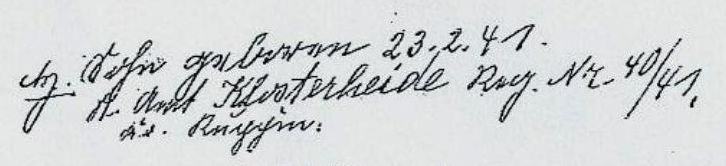 Sohn geboren 23.2.41.
St. Amt Klosterheide Reg. Nr. 40/41.
Kr. Ruppin.